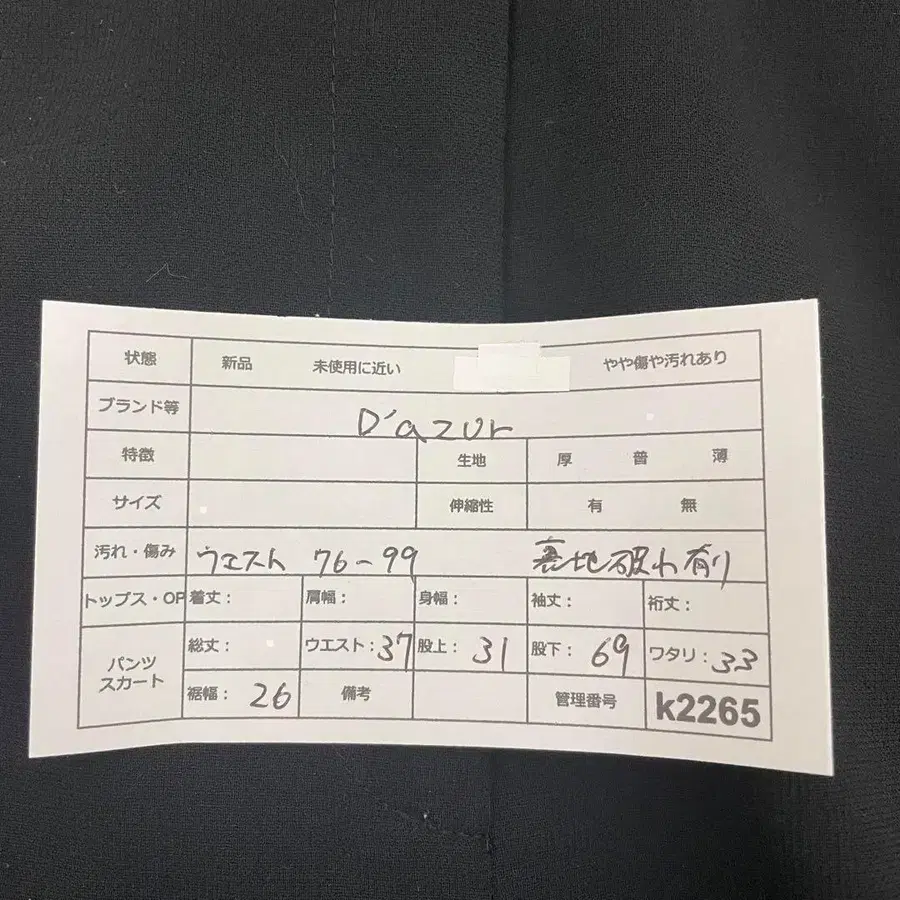 状態 新品 未使用に近い やや傷や汚れあり
ブランド等 D'azur
特徴 生地 厚 普 薄
サイズ 伸縮性 有 無
汚れ・傷み ウエスト 76-99 裏地破れ有り
トップス・OP 着丈： 肩幅： 身幅： 袖丈： 裄丈：
パンツ スカート 総丈： ウエスト：37 股上：31 股下：69 ワタリ：33
裾幅：26 備考 管理番号 k2265